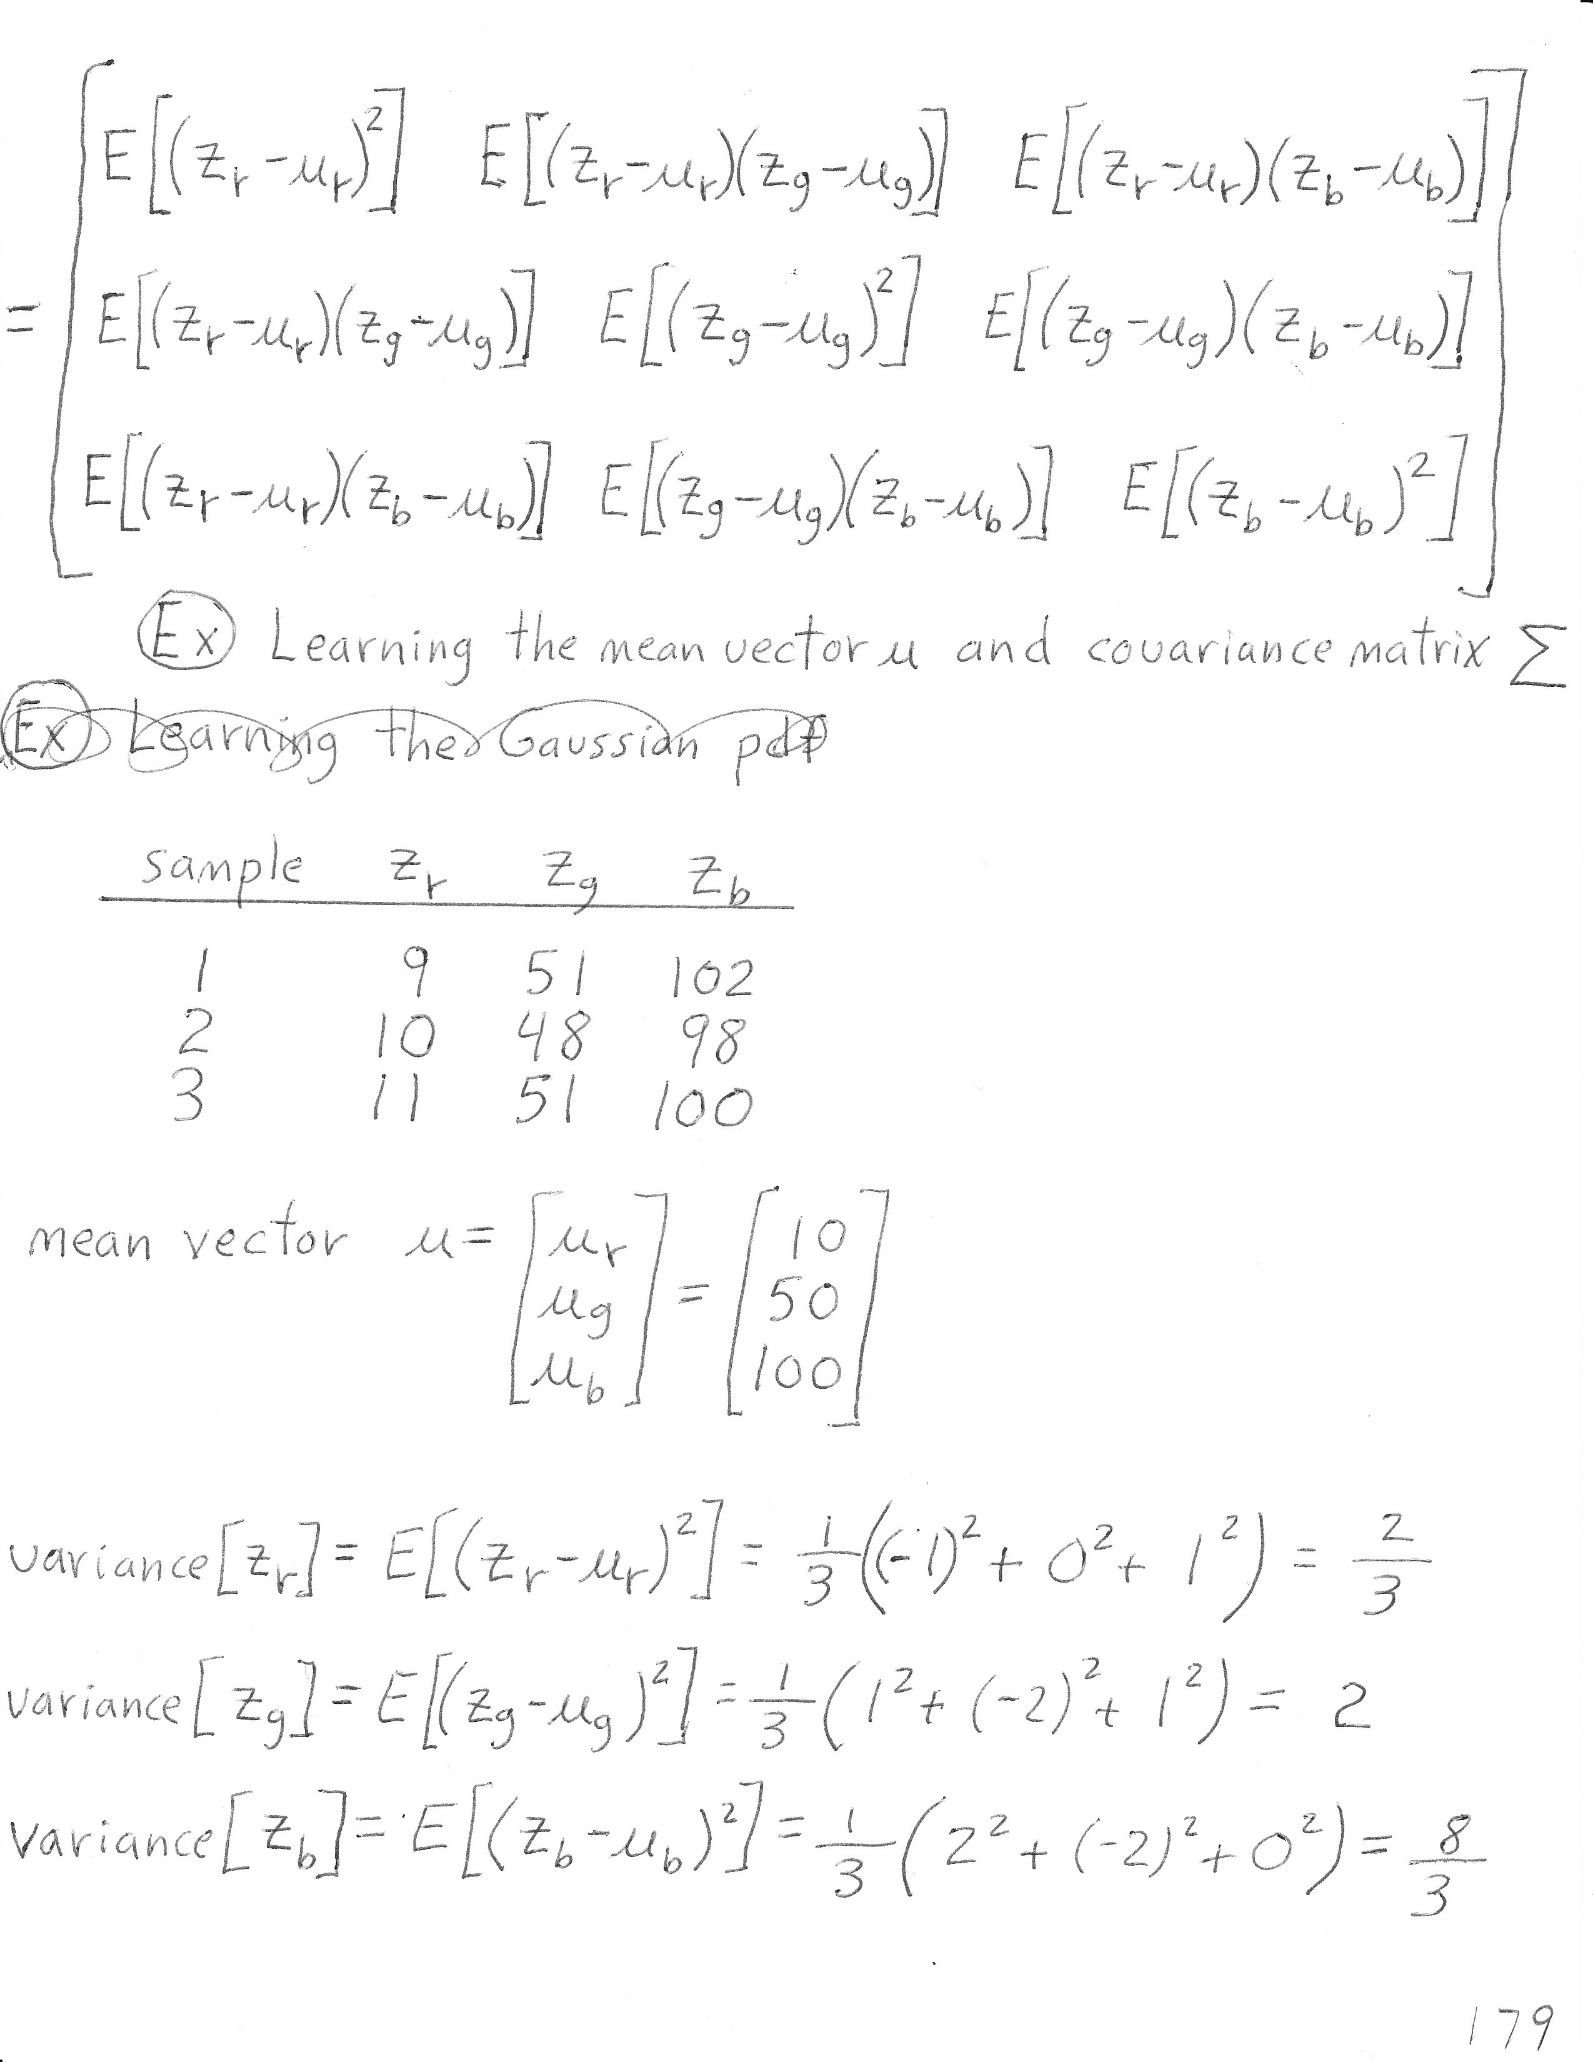 E[(z_r-μ_r)²] E[(z_r-μ_r)(z_g-μ_g)] E[(z_r-μ_r)(z_b-μ_b)]
= E[(z_r-μ_r)(z_g-μ_g)] E[(z_g-μ_g)²] E[(z_g-μ_g)(z_b-μ_b)]
E[(z_r-μ_r)(z_b-μ_b)] E[(z_g-μ_g)(z_b-μ_b)] E[(z_b-μ_b)²]
Ex Learning the mean vector μ and covariance matrix Σ
Ex Learning the Gaussian pdf
sample z_r z_g z_b
1 9 51 102
2 10 48 98
3 11 51 100
mean vector μ = [μ_r μ_g μ_b] = [10 50 100]
variance[z_r] = E[(z_r-μ_r)²] = 1/3((-1)² + 0² + 1²) = 2/3
variance[z_g] = E[(z_g-μ_g)²] = 1/3(1² + (-2)² + 1²) = 2
variance[z_b] = E[(z_b-μ_b)²] = 1/3(2² + (-2)² + 0²) = 8/3
179